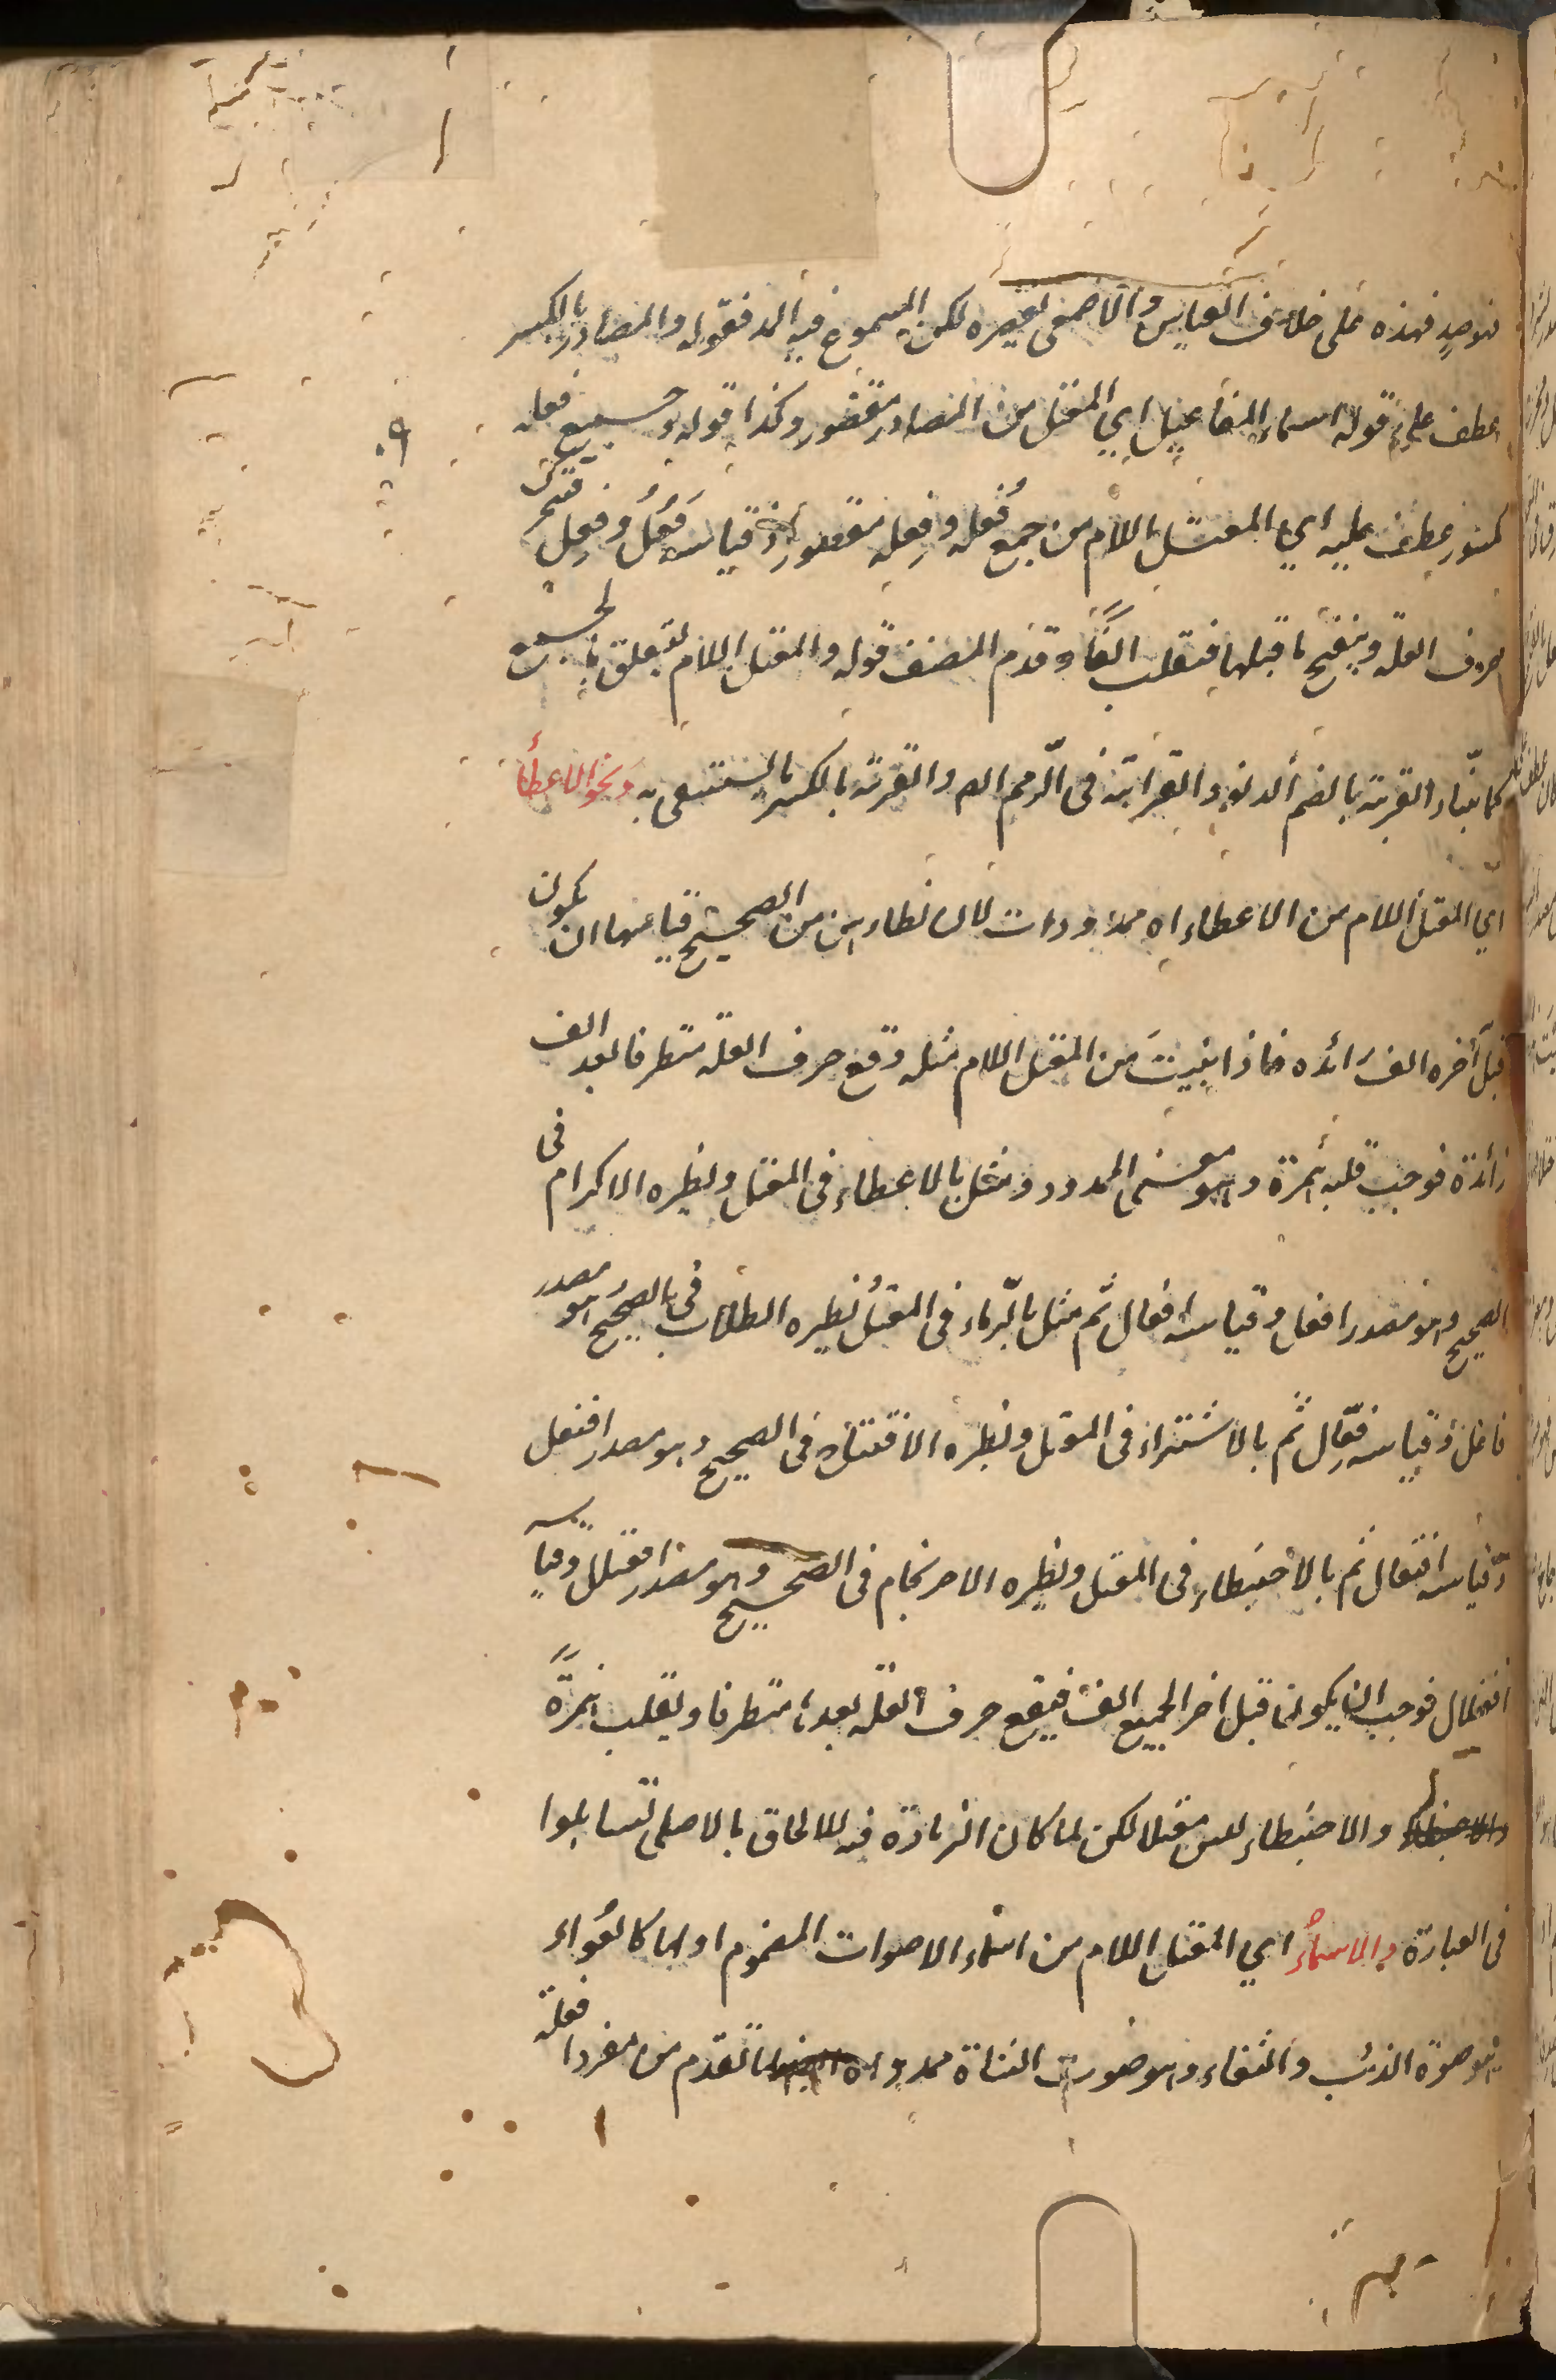 فهو صدٍ فهذه على خلاف القياس والاصمعى يقصره لكن المسموع فيه المد فقوله والمصادر بالكسر
عطف على قوله اسماء المفاعيل اي المعتل من المصادر مقصور وكذا قوله وجميع فعله
كمنور عطف عليه اي المعتل اللام من جمع فُعله وفِعله مقصور اذ قياسه فُعَل وفِعَل فتحرك
حرف العلة وينفتح ما قبلها فتقلب الفًا وقدم المصنف قوله والمعتل اللام ليعلق بالجميع
كما بيّناه القربة بالضم الدنو والقرابة فى الرحم والقربة بالكسر ما يستقى به ونحو الاعطاء
اي المعتل اللام من الاعطاء اه ممدودات لان نظاءرهن من الصحيح قياسها ان يكون
قبل آخره الف زائده فاذا بنيتَ من المعتل اللام مثله وقع حرف العلة متطرفا بعد الف
زائدة فوجب قلبه همزة وهو معنى الممدود ومثل بالاعطاء فى المعتل ونظيره الاكرام فى
الصحيح وهو مصدر افعل وقياسه افعال ثم مثل بالرماء فى المعتل نظيره الطلاب فى الصحيح هو مصدر
فاعل وقياسه فعال ثم بالاشتراء فى المعتل ونظيره الافتتاح فى الصحيح وهو مصدر افتعل
وقياسه افتعال ثم بالاحبنطاء فى المعتل ونظيره الاحرنجام فى الصحيح وهو مصدر افعنلل وقياسه
افعنلال فوجب ان يكون قبل اخر الجميع الف فيقع حرف العلة بعدها متطرفا ويقلب همزةً
والاحبنطاء ليس معتلا لكن لما كان الزيادة فيه للالحاق بالاصلى تساهلوا
فى العبارة والاسماء اي المعتل اللام من اسماء الاصوات المضموم اولها كالعُواء
هو صوة الذئب والثغاء وهو صوت الشاة ممدوده لما تقدم من مفرد افعلة